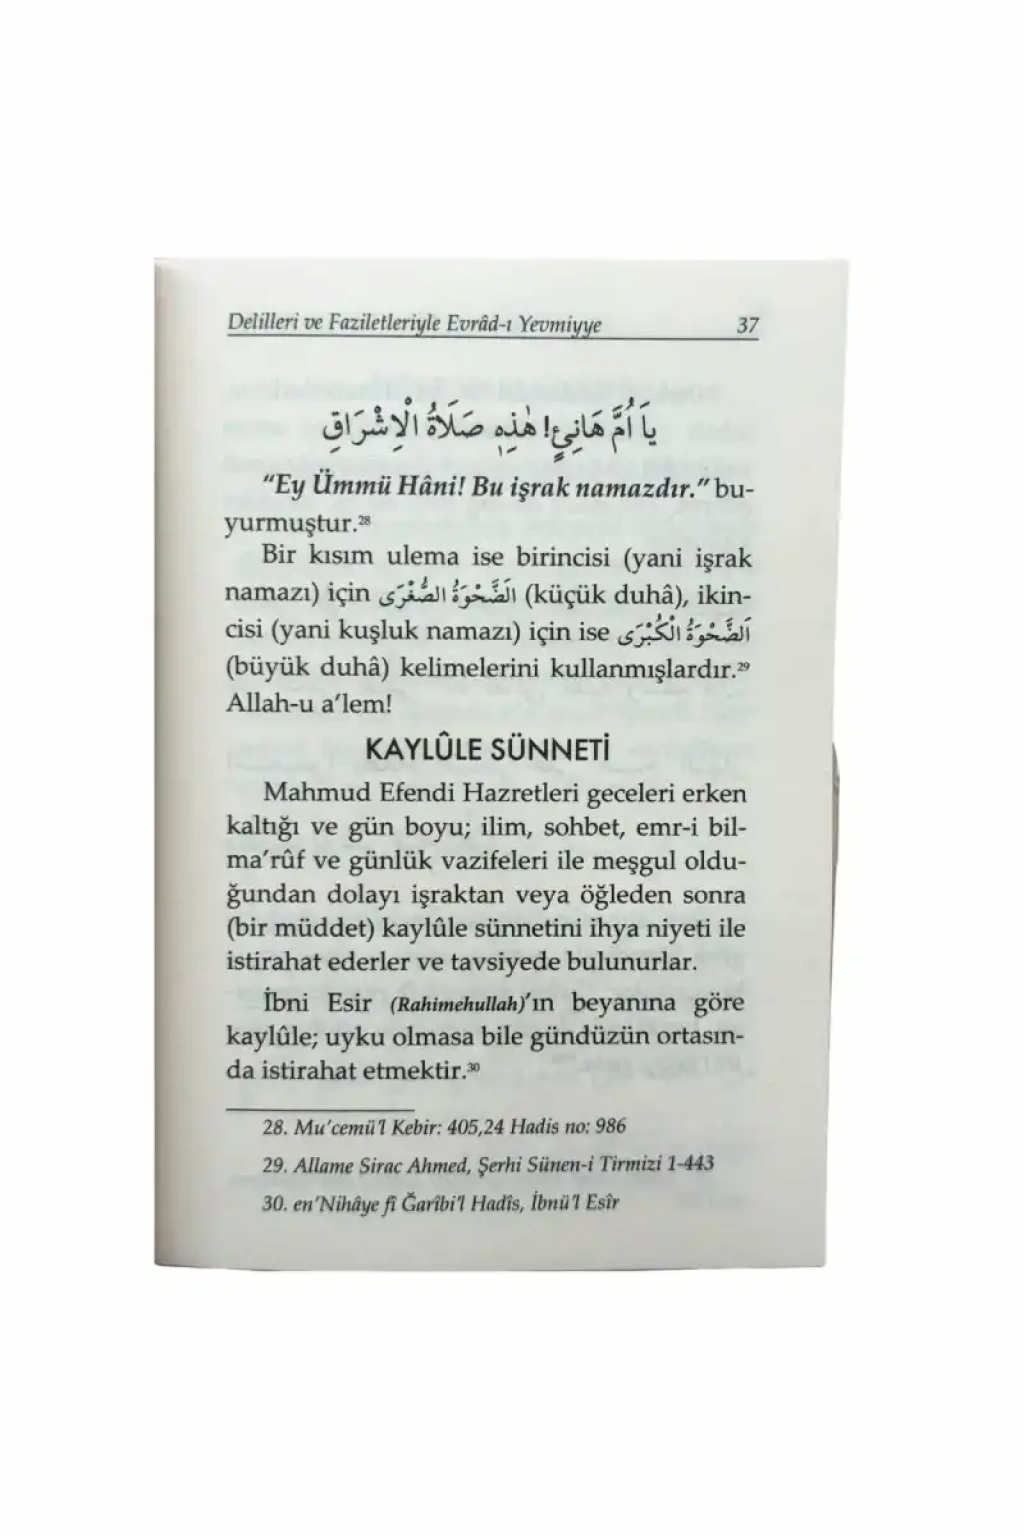 Delilleri ve Faziletleriyle Evrâd-ı Yevmiyye 37
يَا أُمَّ هَانِئٍ! هٰذِهِ صَلَاةُ الْاِشْرَاقِ
"Ey Ümmü Hâni! Bu işrak namazdır." bu-
yurmuştur.28
Bir kısım ulema ise birincisi (yani işrak
namazı) için اَلضَّحْوَةُ الصُّغْرَى (küçük duhâ), ikin-
cisi (yani kuşluk namazı) için ise اَلضَّحْوَةُ الْكُبْرَى
(büyük duhâ) kelimelerini kullanmışlardır.29
Allah-u a'lem!
KAYLÛLE SÜNNETİ
Mahmud Efendi Hazretleri geceleri erken
kaltığı ve gün boyu; ilim, sohbet, emr-i bil-
ma'rûf ve günlük vazifeleri ile meşgul oldu-
ğundan dolayı işraktan veya öğleden sonra
(bir müddet) kaylûle sünnetini ihya niyeti ile
istirahat ederler ve tavsiyede bulunurlar.
İbni Esir (Rahimehullah)'ın beyanına göre
kaylûle; uyku olmasa bile gündüzün ortasın-
da istirahat etmektir.30
28. Mu'cemü'l Kebir: 405,24 Hadis no: 986
29. Allame Sirac Ahmed, Şerhi Sünen-i Tirmizi 1-443
30. en'Nihâye fî Ğarîbi'l Hadîs, İbnü'l Esîr